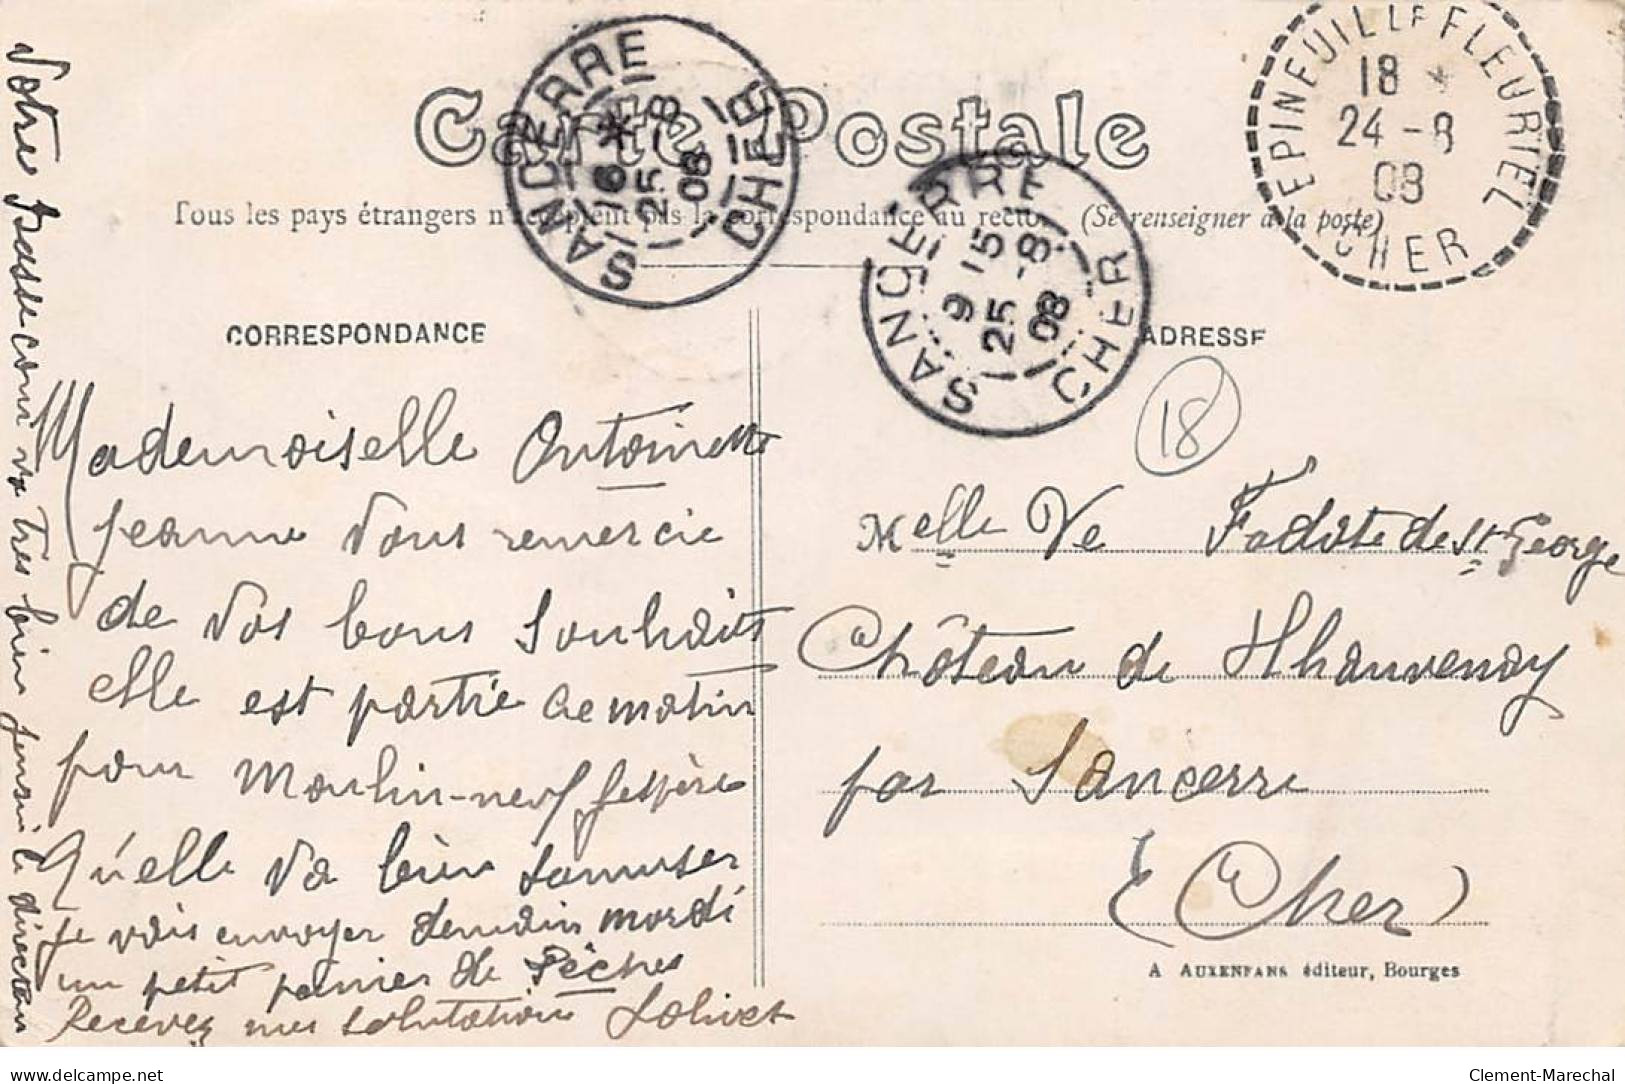 Carte Postale
Tous les pays étrangers n'acceptent pas la correspondance au recto. (Se renseigner à la poste)
SANCERRE
16 *
25 - 8
08
CHER
SANCERRE
9 15
25 - 8
08
CHER
EPINEUIL LE FLEURIEL
18 *
24 - 8
08
CHER
CORRESPONDANCE
ADRESSE
18
Mademoiselle Antoinette
Jeanne vous remercie
de vos bons souhaits
elle est partie ce matin
pour Moulin-neuf j'espère
Qu'elle va bien samuser
Je vais envoyer demain mardi
un petit panier de Pêches
Recevez mes salutations Jolivet
Votre Basse cour va très bien le directeur
Melle Ve Fadate de St George
Château de Thauvenay
par Sancerre
(Cher)
A AUXENFANS éditeur, Bourges
Clement-Marechal
www.delcampe.net